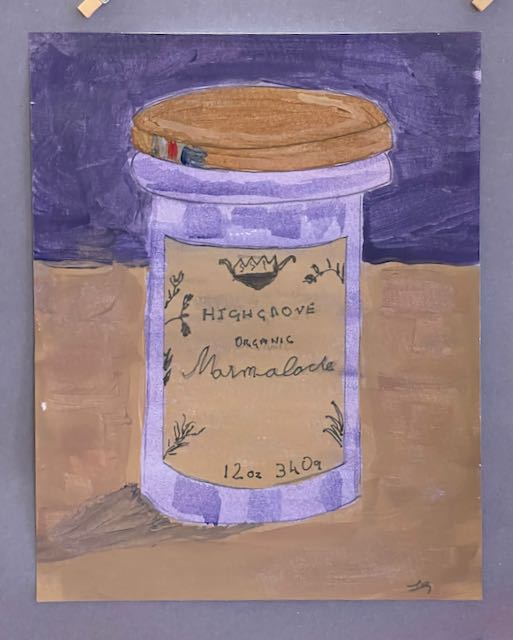 HIGHGROVE
ORGANIC
Marmalade
12oz 340g